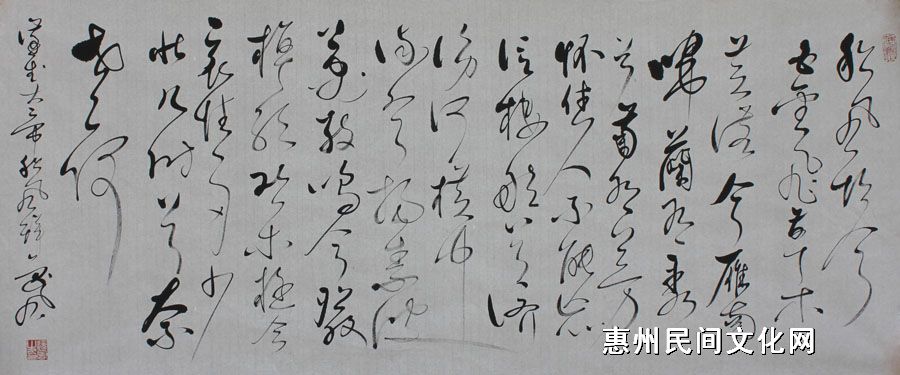 秋风起兮
白雲飛草木
黄落兮雁南
歸蘭有秀
兮菊有芳
怀佳人不能忘
泛楼船兮济
汾河横中
流兮揚素波
箫鼓鸣兮發
棹歌欢乐極兮
哀情多少
壮几时兮奈
老何
漢武大帝秋風辞
惠州民间文化网